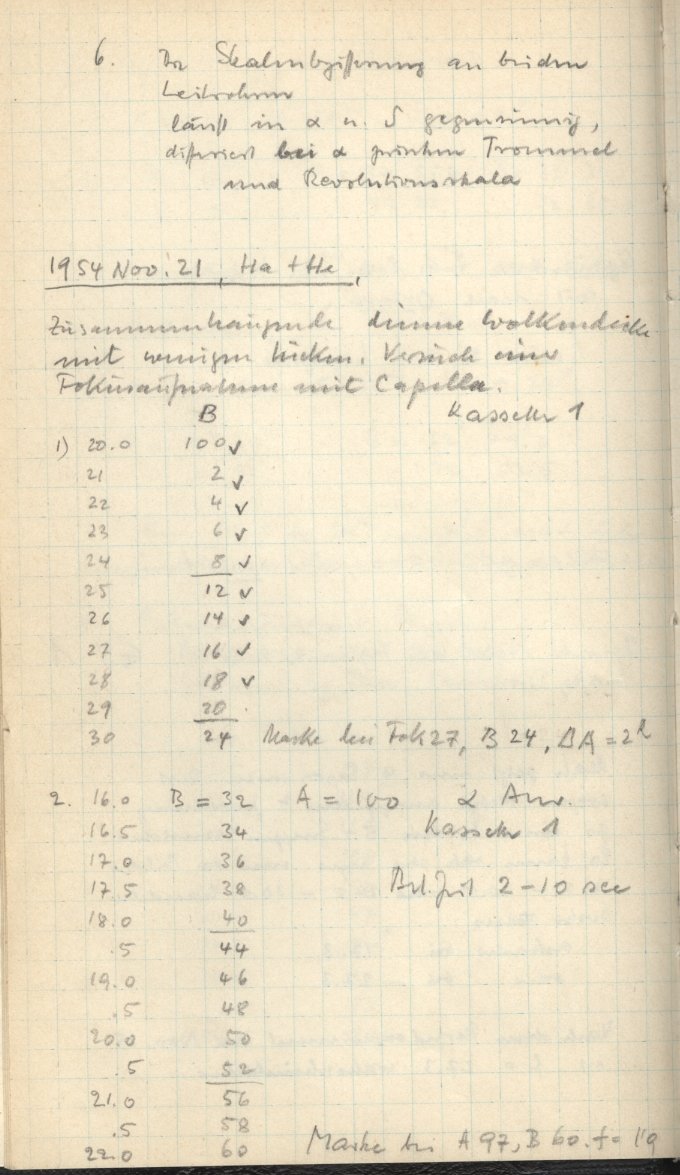 6. Die Skalenbezifferung an beiden
Leitrohren
läuft in α u. δ gegensinnig,
differiert bei α zwischen Trommel
und Revolutionsskala
1954 Nov. 21, Ha + He,
Zusammenhängende dünne Wolkendecke
mit wenigen Lücken. Versuch einer
Fokusaufnahme mit Capella.
B Kassette 1
1) 20.0 100 ✓
21 2 ✓
22 4 ✓
23 6 ✓
24 8 ✓
25 12 ✓
26 14 ✓
27 16 ✓
28 18 ✓
29 20
30 24 Marke bei Fok 27, B 24, ΔA = 2
2. 16.0 B = 32 A = 100 α Aur.
16.5 34 Kassette 1
17.0 36
17.5 38 Bel. Zeit 2-10 sec
18.0 40
.5 44
19.0 46
.5 48
20.0 50
.5 52
21.0 56
.5 58
22.0 60 Marke bei A 97, B 60. f = 119